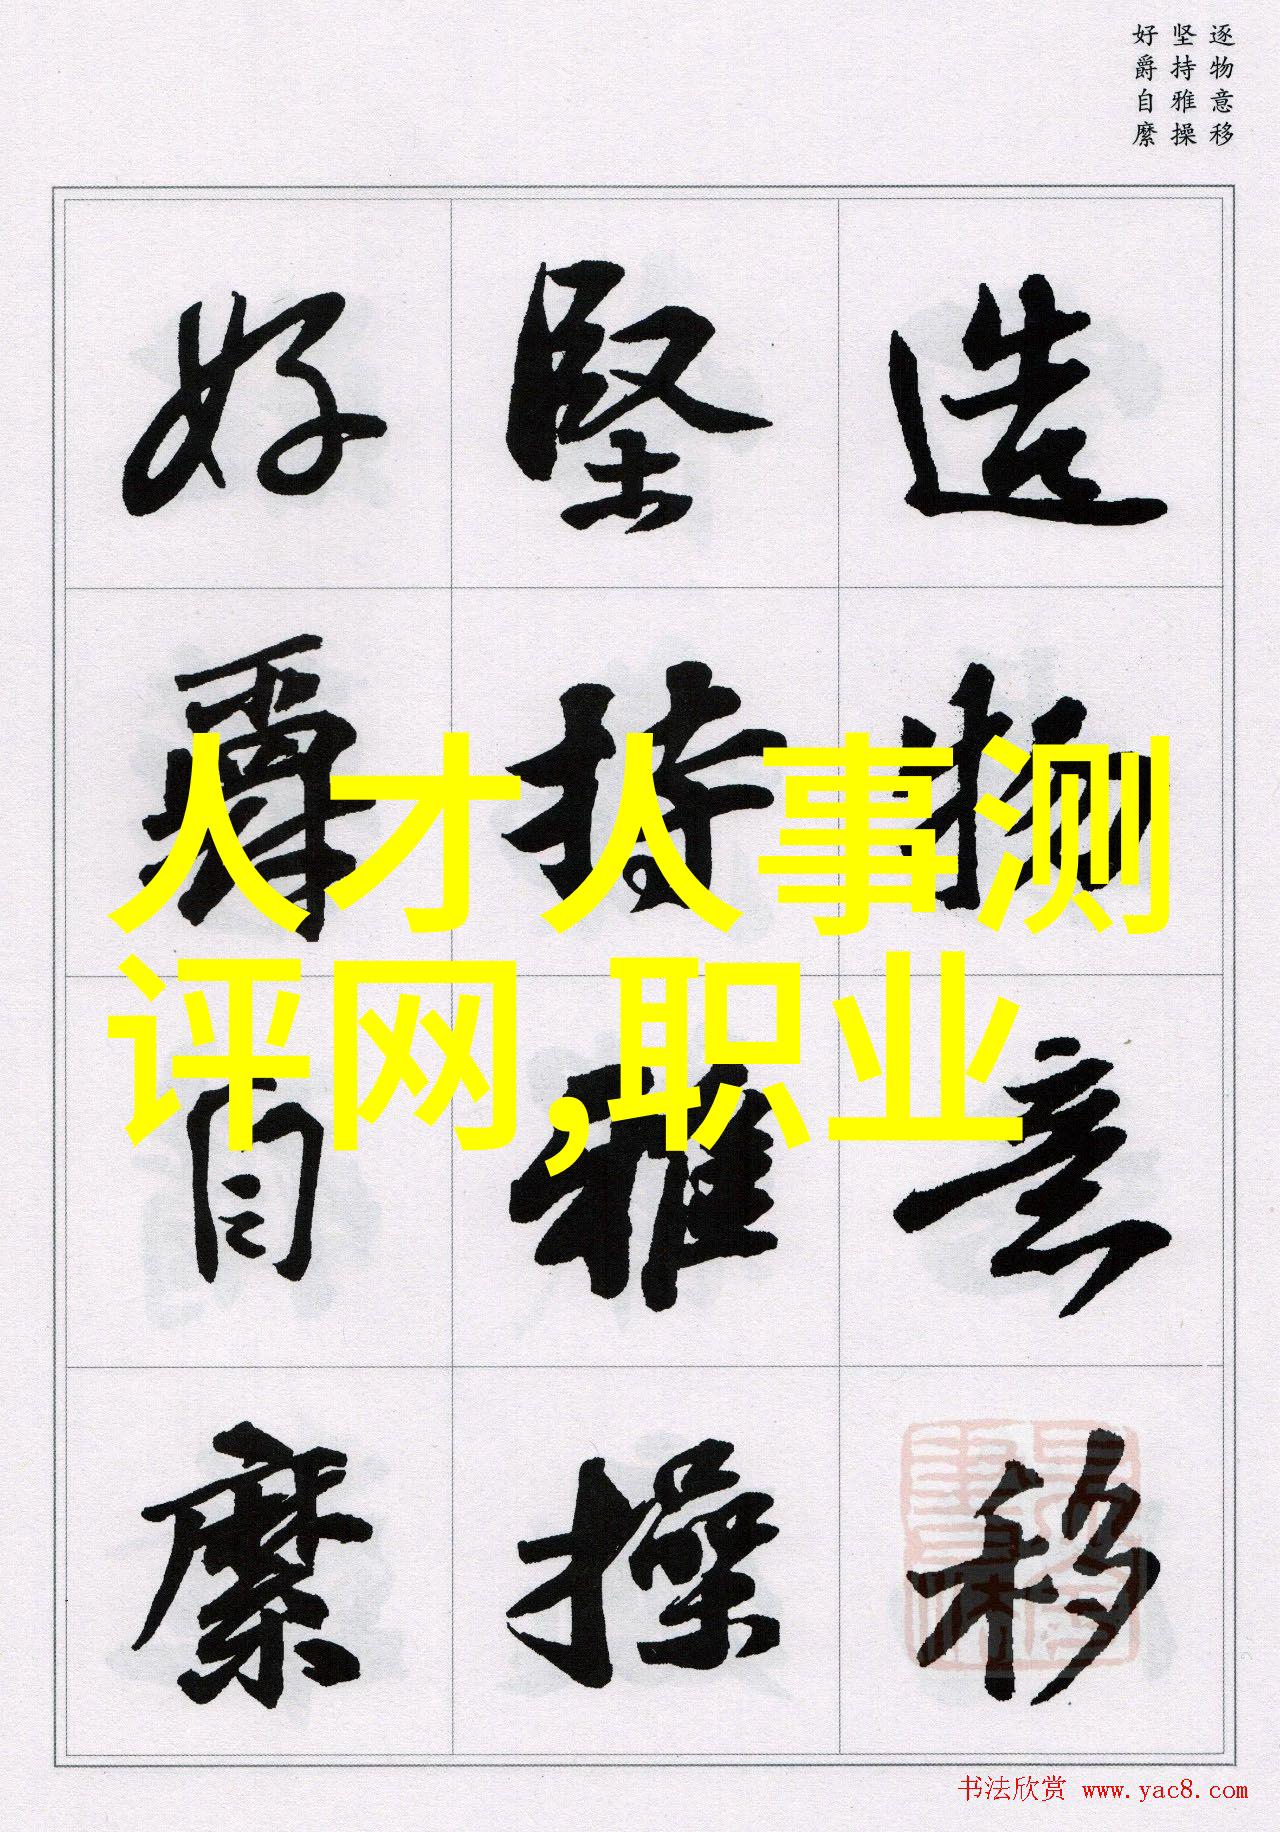 逐物意移
坚持雅操
好爵自縻
造物意移
堅持雅操
好爵自縻
人才人事测
评网,职业
书法欣赏 www.yac8.com